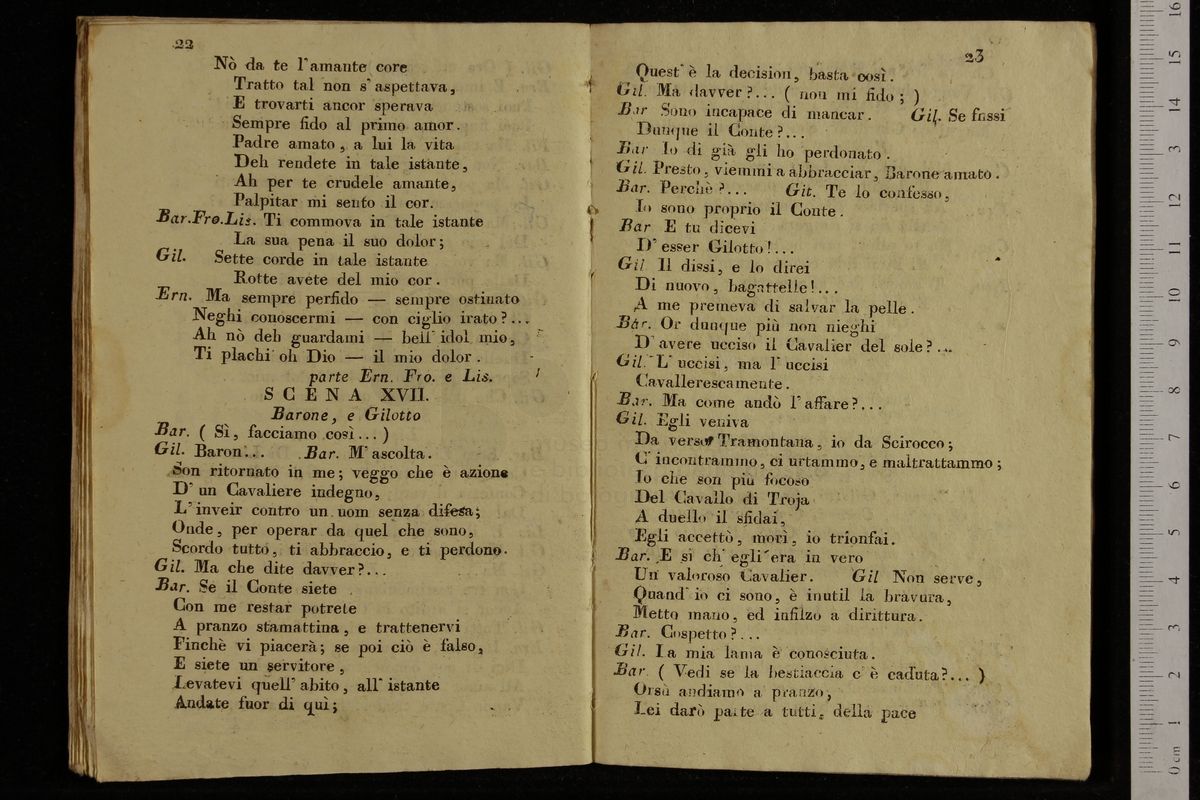 22
Nò da te l'amante core
Tratto tal non s'aspettava,
E trovarti ancor sperava
Sempre fido al primo amor.
Padre amato, a lui la vita
Deh rendete in tale istante,
Ah per te crudele amante,
Palpitar mi sento il cor.
Bar.Fro.Lis. Ti commova in tale istante
La sua pena il suo dolor;
Gil. Sette corde in tale istante
Rotte avete del mio cor.
Ern. Ma sempre perfido — sempre ostinato
Neghi conoscermi — con ciglio irato?...
Ah nò deh guardami — bell'idol mio,
Ti plachi oh Dio — il mio dolor.
parte Ern. Fro. e Lis.
SCENA XVII.
Barone, e Gilotto
Bar. ( Sì, facciamo così... )
Gil. Baron... Bar. M'ascolta.
Son ritornato in me; veggo che è azione
D'un Cavaliere indegno,
L'inveir contro un uom senza difesa;
Onde, per operar da quel che sono,
Scordo tutto, ti abbraccio, e ti perdono.
Gil. Ma che dite davver?...
Bar. Se il Conte siete
Con me restar potrete
A pranzo stamattina, e trattenervi
Finchè vi piacerà; se poi ciò è falso,
E siete un servitore,
Levatevi quell'abito, all'istante
Andate fuor di quì;
23
Quest'è la decision, basta così.
Gil. Ma davver?... ( non mi fido; )
Bar Sono incapace di mancar. Gil. Se fossi
Dunque il Conte?...
Bar Io di già gli ho perdonato.
Gil. Presto, viemmi a abbracciar, Barone amato.
Bar. Perchè?... Git. Te lo confesso,
Io sono proprio il Conte.
Bar E tu dicevi
D'esser Gilotto!...
Gil Il dissi, e lo direi
Di nuovo, bagattelle!...
A me premeva di salvar la pelle.
Bar. Or dunque più non nieghi
D'avere ucciso il Cavalier del sole?...
Gil. L'uccisi, ma l'uccisi
Cavallerescamente.
Bar. Ma come andò l'affare?...
Gil. Egli veniva
Da verso Tramontana, io da Scirocco;
C'incontrammo, ci urtammo, e maltrattammo;
Io che son più focoso
Del Cavallo di Troja
A duello il sfidai,
Egli accettò, morì, io trionfai.
Bar. E sì ch'egli'era in vero
Un valoroso Cavalier. Gil Non serve,
Quand'io ci sono, è inutil la bravura,
Metto mano, ed infilzo a dirittura.
Bar. Cospetto?...
Gil. La mia lama è conosciuta.
Bar. ( Vedi se la bestiaccia c'è caduta?... )
Orsù andiamo a pranzo,
Lei darò parte a tutti, della pace
0 cm 1 2 3 4 5 6 7 8 9 10 11 12 13 14 15 16